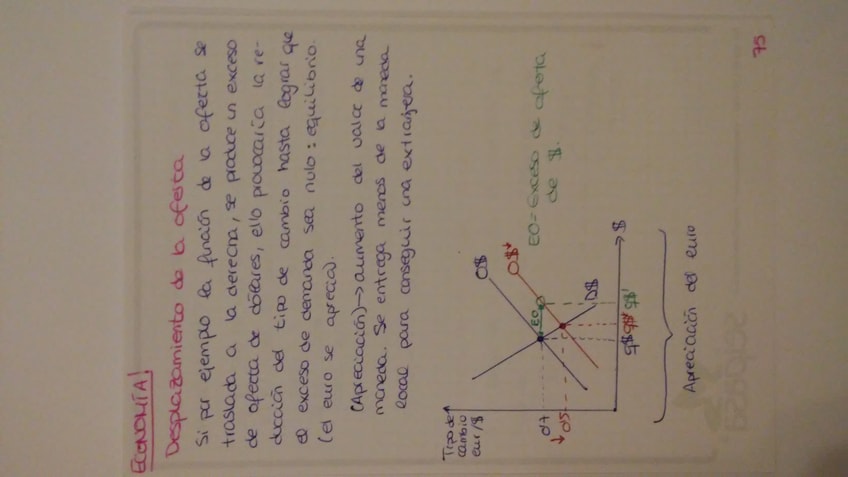 ECONOMÍA
Desplazamiento de la oferta
Si por ejemplo la función de la oferta se
traslada a la derecha, se produce un exceso
de oferta de dólares, ello provocaría la re-
ducción del tipo de cambio hasta lograr que
el exceso de demanda sea nulo: equilibrio.
(el euro se aprecia).
(Apreciación)→ aumento del valor de una
moneda. Se entrega menos de la moneda
local para conseguir una extranjera.
Tipo de
cambio
eur/$
O$
O$'
EO
EO = Exceso de oferta
de $.
D$
$
Apreciación del euro
75